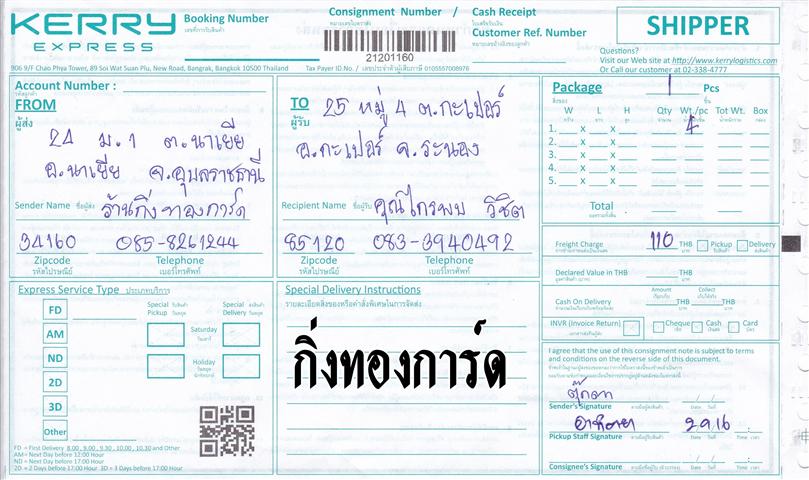 KERRY
EXPRESS
Booking Number
เลขที่การรับสินค้า
Consignment Number /
หมายเลขใบตราส่ง
Cash Receipt
ใบเสร็จรับเงิน
Customer Ref. Number
หมายเลขอ้างอิงของลูกค้า
21201160
SHIPPER
Questions?
Visit our Web site at http://www.kerrylogistics.com
Or Call our customer at 02-338-4777
906 9/F Chao Phya Tower, 89 Soi Wat Suan Plu, New Road, Bangrak, Bangkok 10500 Thailand
Tax Payer ID No. / เลขประจำตัวผู้เสียภาษี 0105557008976
Account Number :
รหัสลูกค้า
FROM
ผู้ส่ง
24 ม.1 ต.นาเยีย
อ.นาเยีย จ.อุบลราชธานี
Sender Name ชื่อผู้ส่ง ร้านกิ่งทองการ์ด
34160 085-8261244
Zipcode Telephone
รหัสไปรษณีย์ เบอร์โทรศัพท์
TO
ผู้รับ
25 หมู่ 4 ต.กะเปอร์
อ.กะเปอร์ จ.ระนอง
Recipient Name ชื่อผู้รับ คุณไกรพบ วิชิต
85120 083-3940492
Zipcode Telephone
รหัสไปรษณีย์ เบอร์โทรศัพท์
Package 1 Pcs
สิ่งของ ชิ้น
W L H Qty Wt./pc Tot Wt. Box
กว้าง ยาว สูง จำนวน
1. X X 4
2. X X
3. X X
4. X X
5. X X
Total
ยอดรวมทั้งสิ้น
Freight Charge 110 THB Pickup Delivery
Declared Value in THB THB
Amount Collect
Cash On Delivery THB THB
INVR (Invoice Return) Cheque Cash Card
Express Service Type ประเภทบริการ
FD
AM
ND
2D
3D
Other
Special Pickup
Special Delivery
Saturday
วันเสาร์
Holiday
วันหยุด
นักขัตฤกษ์
FD = First Delivery 8.00 , 9.00 , 9.30 , 10.00 , 10.30 and Other
AM = Next Day before 12:00 Hour
ND = Next Day before 17:00 Hour
2D = 2 Days before 17:00 Hour 3D = 3 Days before 17:00 Hour
Special Delivery Instructions
รายละเอียดสิ่งของหรือคำสั่งพิเศษในการจัดส่ง
กิ่งทองการ์ด
I agree that the use of this consignment note is subject to terms
and conditions on the reverse side of this document.
ตุ๊กตา
Sender's Signature ลายมือชื่อผู้ส่ง Date วันที่
2916
Pickup Staff Signature Date วันที่ Time เวลา
Consignee's Signature Date วันที่ Time เวลา